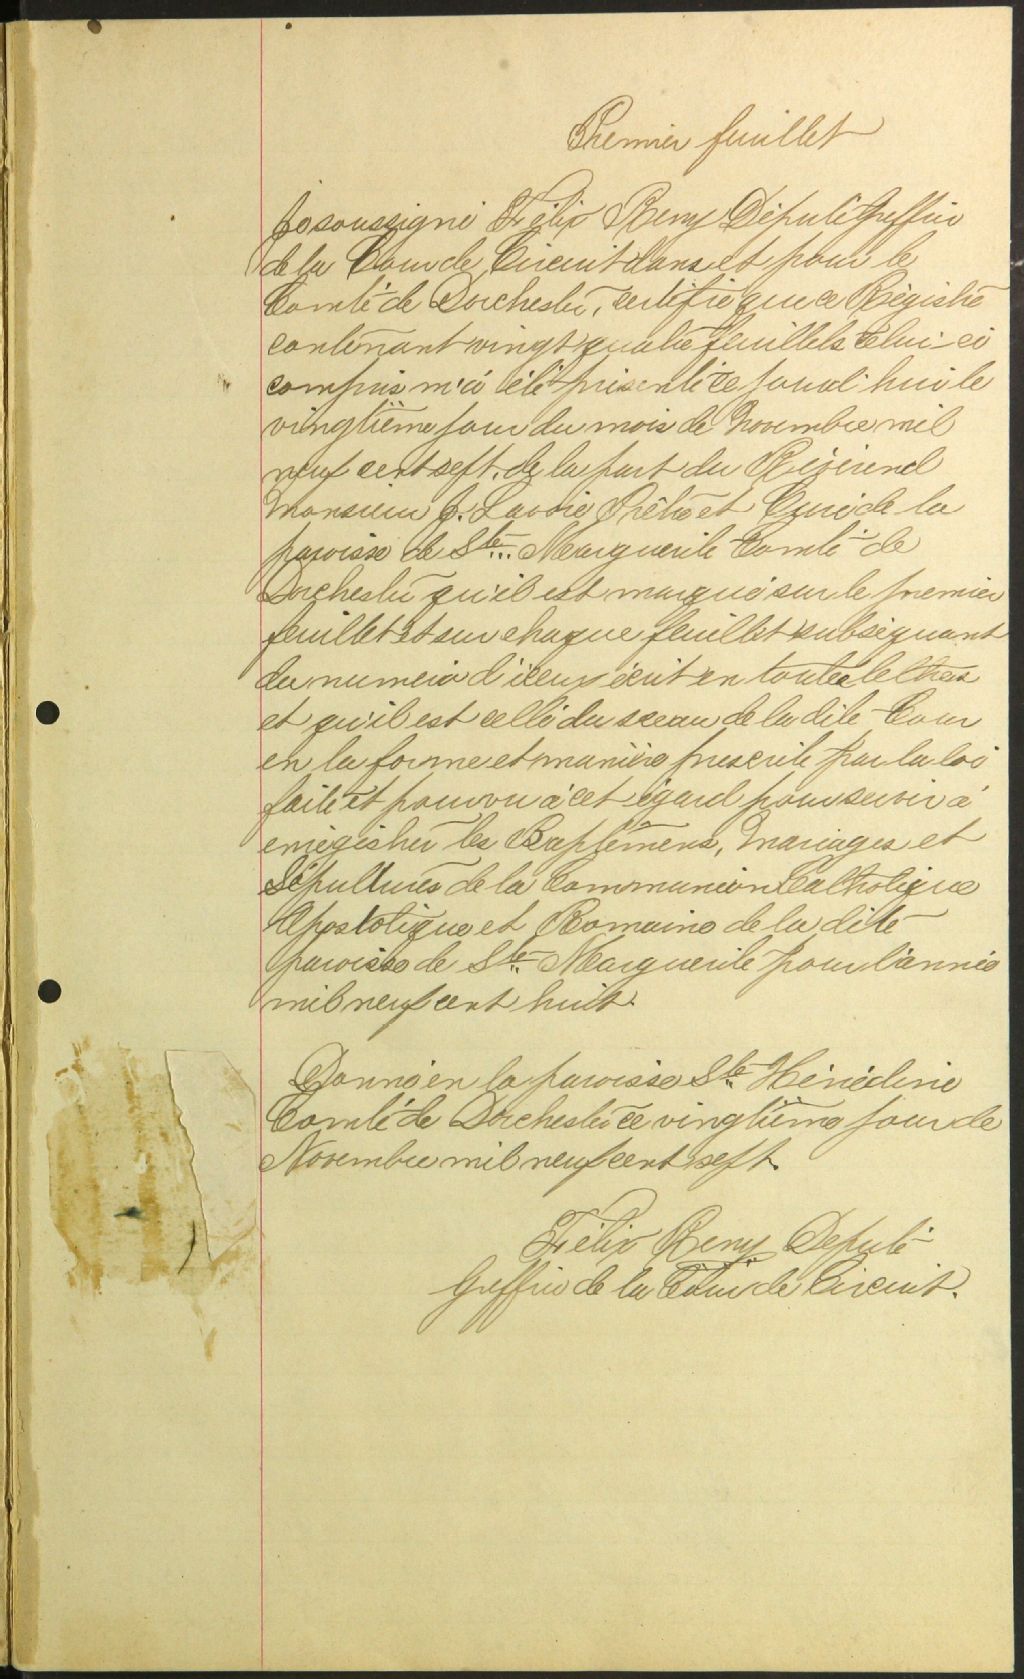 Premier feuillet
Je soussigné Félix Remy Député Greffier
de la Cour de Circuit dans et pour le
Comté de Dorchester, certifie que ce Régistre
contenant vingt quatre feuillets celui-ci
compris m'a été présenté ce jourd'hui le
vingtième jour du mois de Novembre mil
neuf cent sept, de la part du Révérend
Monsieur J. Lavoie Prêtre et Curé de la
paroisse de Ste Marguerite Comté de
Dorchester qu'il est marqué sur le premier
feuillet et sur chaque feuillet subséquant
du numéro d'iceux écrit en toutes lettres
et qu'il est cellé du sceau de la dite Cour
en la forme et manière prescrite par la loi
faite et pourvu à cet égard pour servir à
enrégistrer les Baptêmes, Mariages et
Sépultures de la Communion Catholique
Apostolique et Romaine de la dite
paroisse de Ste Marguerite pour l'année
mil neuf cent huit.
Donné en la paroisse Ste Hénédine
Comté de Dorchester ce vingtième jour de
Novembre mil neuf cent sept.
Félix Remy Député
Greffier de la Cour de Circuit.